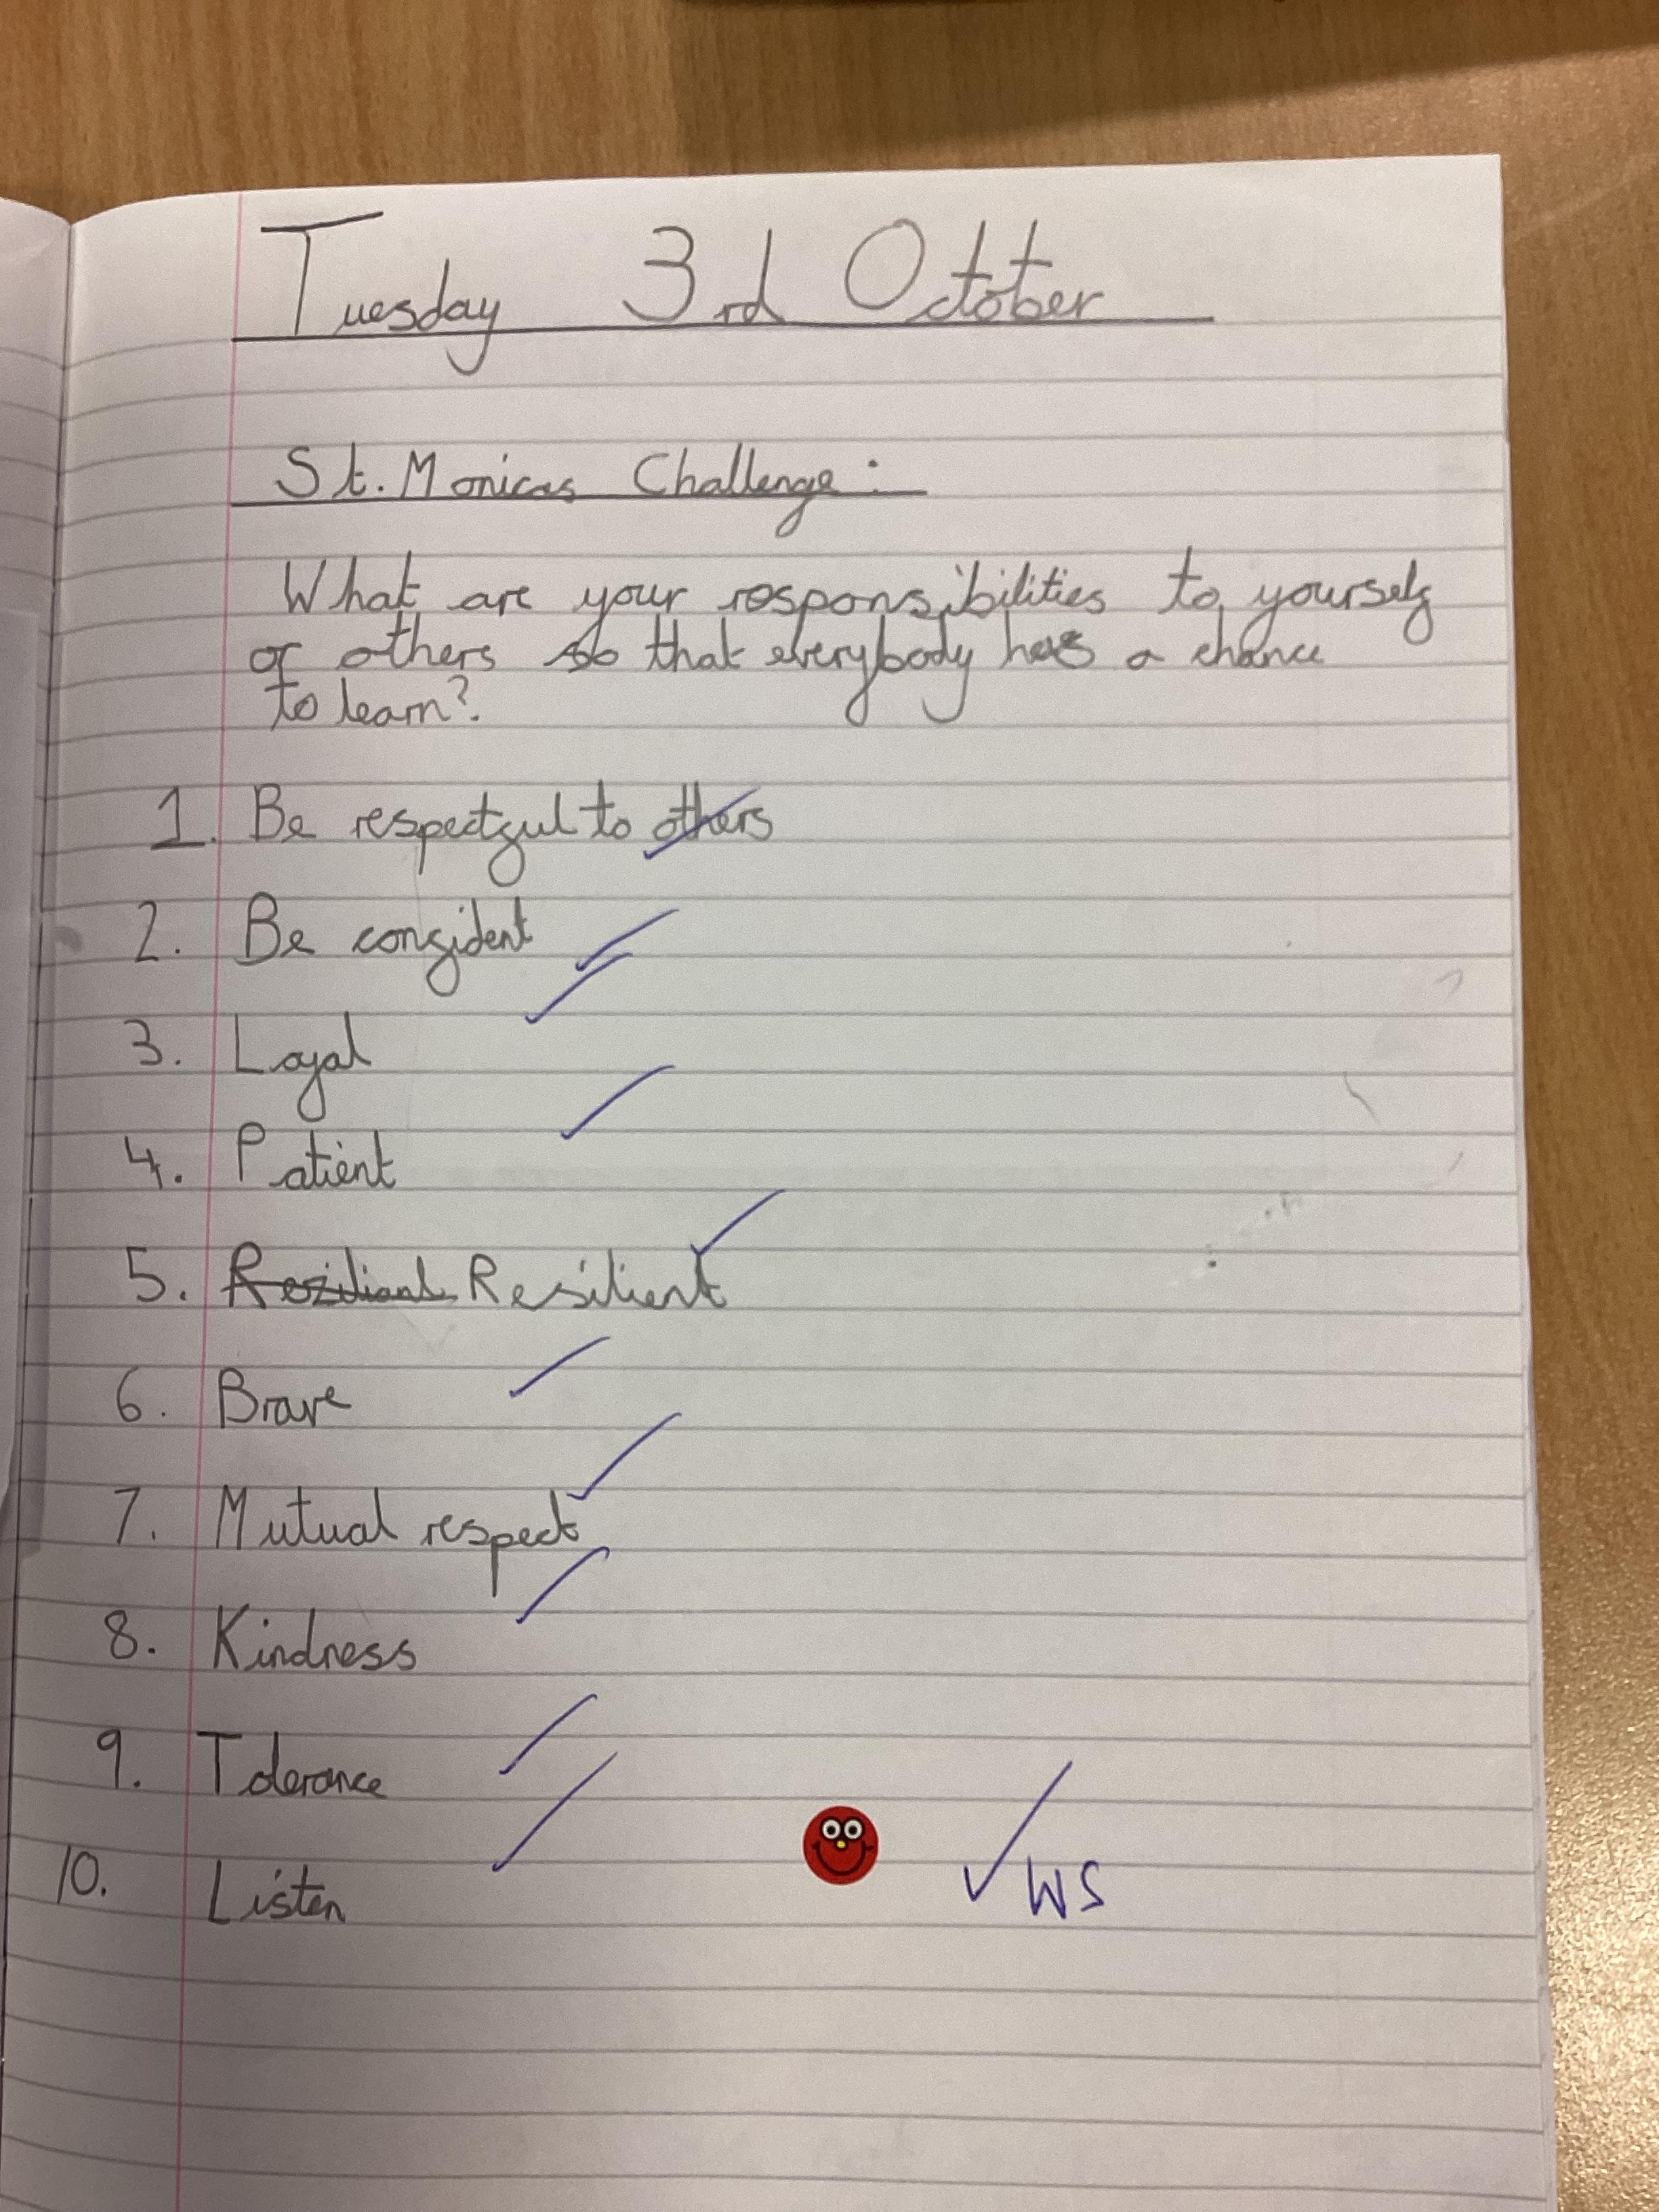 Tuesday 3rd October
St. Monicas Challenge:
What are your responsibilities to yourself
or others so that everybody has a chance
to learn?
1. Be respectful to others
2. Be confident
3. Loyal
4. Patient
5. Reziliant Resilient
6. Brave
7. Mutual respect
8. Kindness
9. Tolerance
10. Listen
WS